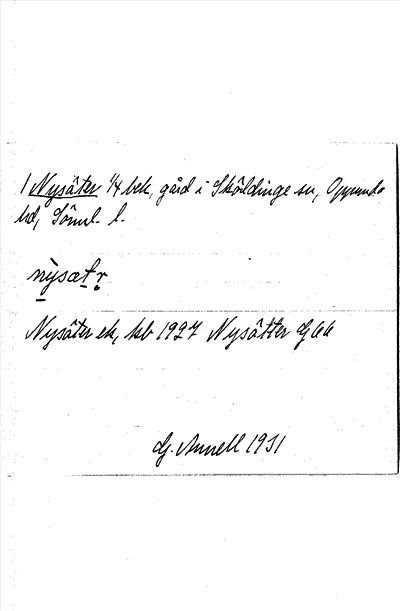 1 Nysäter 1/4 bek, gård i Sköldinge sn, Oppunda
hd, Söml. l.
nỳsætr̥
Nysäter ek, kb 1927 Nysätter Gkk
G. Annell 1931